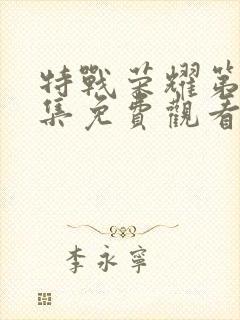 特戰荣耀第
集免費觀看
李永寧